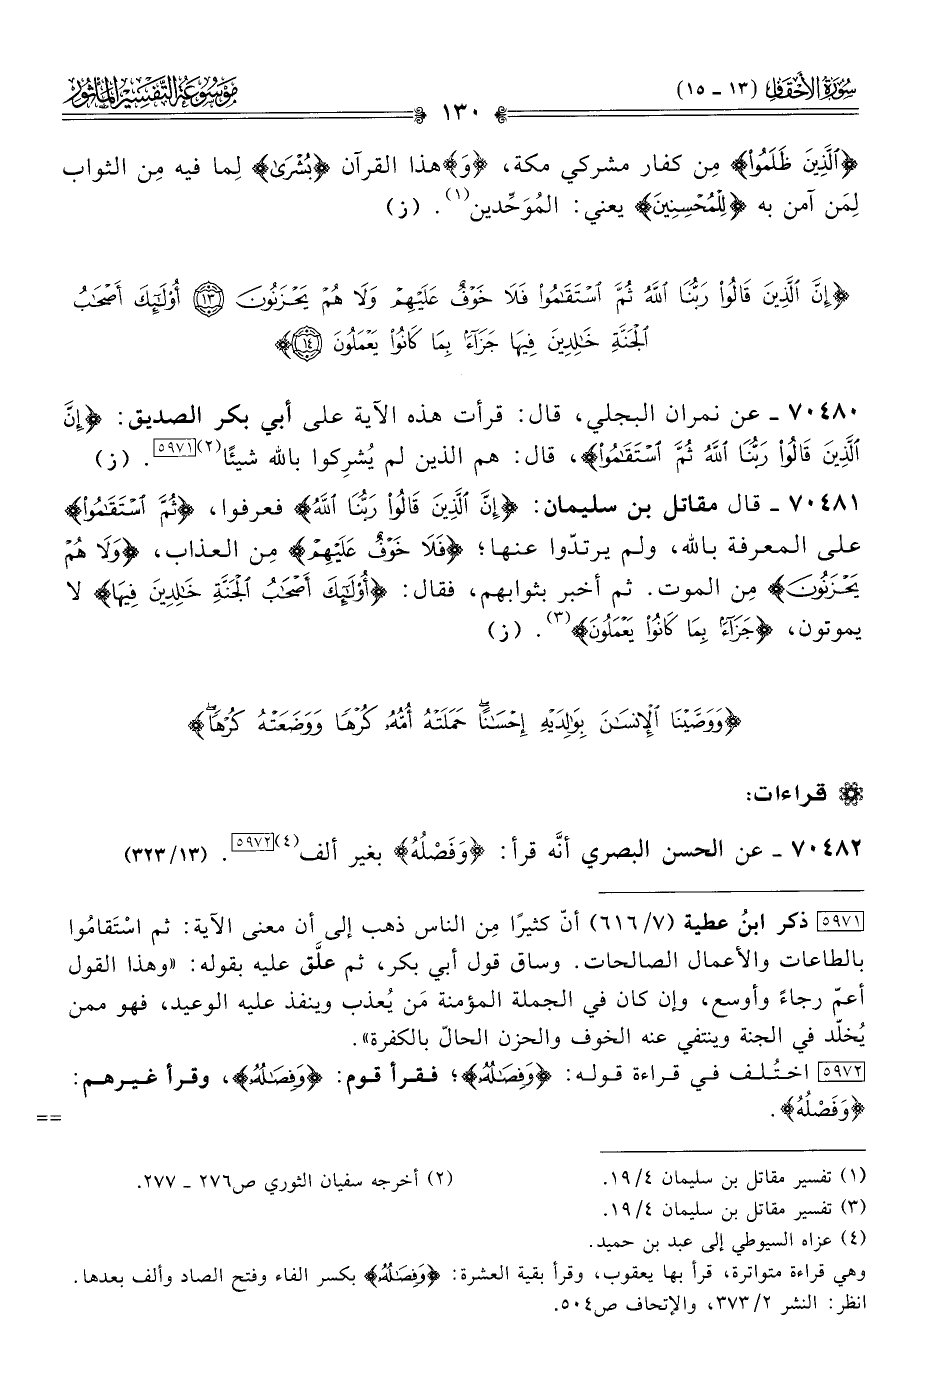 سُورَةُ الأَحْقَافِ (١٣ - ١٥)
١٣٠
مَوْسُوعَةُ التَّفْسِيْرِ المَأْثُورِ
﴿ٱلَّذِينَ ظَلَمُواْ﴾ مِن كفار مشركي مكة، ﴿وَ﴾هذا القرآن ﴿بُشْرَىٰ﴾ لِما فيه مِن الثواب
لِمَن آمن به ﴿لِلْمُحْسِنِينَ﴾ يعني: المُوَحِّدين(١). (ز)
﴿إِنَّ ٱلَّذِينَ قَالُواْ رَبُّنَا ٱللَّهُ ثُمَّ ٱسْتَقَٰمُواْ فَلَا خَوْفٌ عَلَيْهِمْ وَلَا هُمْ يَحْزَنُونَ ١٣ أُوْلَٰٓئِكَ أَصْحَٰبُ
ٱلْجَنَّةِ خَٰلِدِينَ فِيهَا جَزَآءًۢ بِمَا كَانُواْ يَعْمَلُونَ ١٤﴾
٧٠٤٨٠ ـ عن نمران البجلي، قال: قرأت هذه الآية على أبي بكر الصديق: ﴿إِنَّ
ٱلَّذِينَ قَالُواْ رَبُّنَا ٱللَّهُ ثُمَّ ٱسْتَقَٰمُواْ﴾، قال: هم الذين لم يُشرِكوا بالله شيئًا(٢)[٥٩٧١]. (ز)
٧٠٤٨١ ـ قال مقاتل بن سليمان: ﴿إِنَّ ٱلَّذِينَ قَالُواْ رَبُّنَا ٱللَّهُ﴾ فعرفوا، ﴿ثُمَّ ٱسْتَقَٰمُواْ﴾
على المعرفة بالله، ولم يرتدّوا عنها؛ ﴿فَلَا خَوْفٌ عَلَيْهِمْ﴾ مِن العذاب، ﴿وَلَا هُمْ
يَحْزَنُونَ﴾ مِن الموت. ثم أخبر بثوابهم، فقال: ﴿أُوْلَٰٓئِكَ أَصْحَٰبُ ٱلْجَنَّةِ خَٰلِدِينَ فِيهَا﴾ لا
يموتون، ﴿جَزَآءًۢ بِمَا كَانُواْ يَعْمَلُونَ﴾(٣). (ز)
﴿وَوَصَّيْنَا ٱلْإِنسَٰنَ بِوَٰلِدَيْهِ إِحْسَٰنًا ۖ حَمَلَتْهُ أُمُّهُۥ كُرْهًا وَوَضَعَتْهُ كُرْهًا ۖ﴾
قراءات:
٧٠٤٨٢ ـ عن الحسن البصري أنَّه قرأ: ﴿وَفَصْلُهُ﴾ بغير ألف(٤)[٥٩٧٢]. (٣٢٣/١٣)
[٥٩٧١] ذكر ابنُ عطية (٦١٦/٧) أنّ كثيرًا مِن الناس ذهب إلى أن معنى الآية: ثم اسْتَقامُوا
بالطاعات والأعمال الصالحات. وساق قول أبي بكر، ثم علَّق عليه بقوله: «وهذا القول
أعمّ رجاءً وأوسع، وإن كان في الجملة المؤمنة مَن يُعذب وينفذ عليه الوعيد، فهو ممن
يُخلّد في الجنة وينتفي عنه الخوف والحزن الحالّ بالكفرة».
[٥٩٧٢] اختُلف في قراءة قوله: ﴿وَفِصَٰلُهُۥ﴾؛ فقرأ قوم: ﴿وَفِصَٰلُهُۥ﴾، وقرأ غيرهم:
﴿وَفَصْلُهُ﴾.
==
(١) تفسير مقاتل بن سليمان ١٩/٤.
(٢) أخرجه سفيان الثوري ص٢٧٦ ـ ٢٧٧.
(٣) تفسير مقاتل بن سليمان ١٩/٤.
(٤) عزاه السيوطي إلى عبد بن حميد.
وهي قراءة متواترة، قرأ بها يعقوب، وقرأ بقية العشرة: ﴿وَفِصَٰلُهُۥ﴾ بكسر الفاء وفتح الصاد وألف بعدها.
انظر: النشر ٣٧٣/٢، والإتحاف ص٥٠٤.